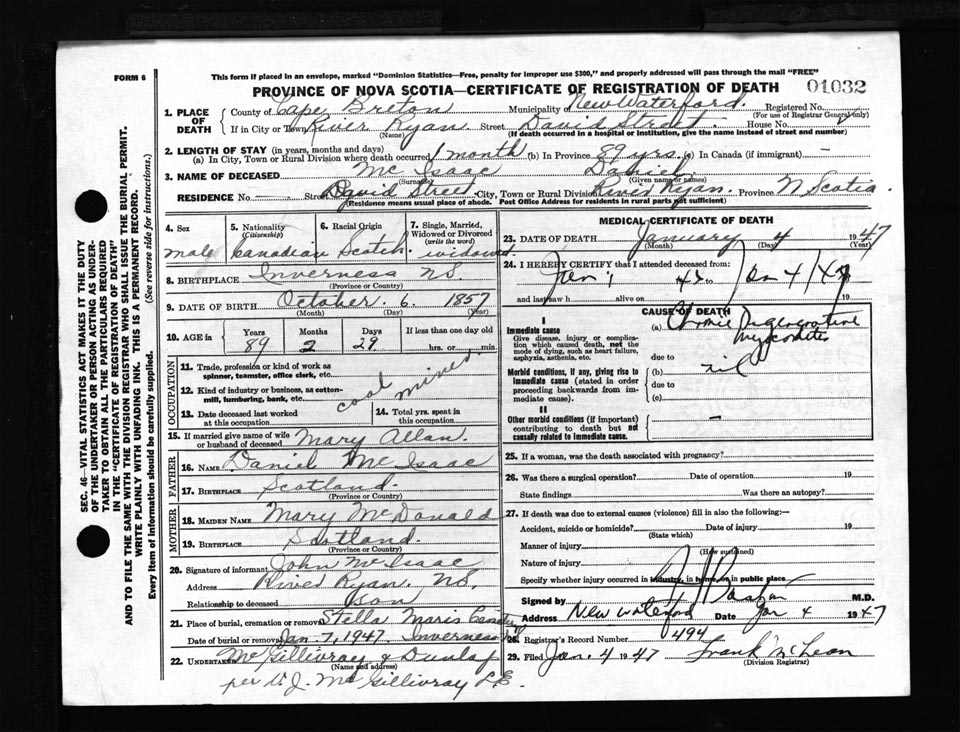 FORM 6
This form if placed in an envelope, marked "Dominion Statistics—Free, penalty for improper use $300," and properly addressed will pass through the mail "FREE"
PROVINCE OF NOVA SCOTIA—CERTIFICATE OF REGISTRATION OF DEATH
01032
1. PLACE OF DEATH
County of Cape Breton Municipality of New Waterford. Registered No.
(For use of Registrar General only)
If in City or Town River Ryan. Street David Street. House No.
(Name) (If death occurred in a hospital or institution, give the name instead of street and number)
2. LENGTH OF STAY (in years, months and days)
(a) In City, Town or Rural Division where death occurred 1 month (b) In Province 89 yrs. (c) In Canada (if immigrant) —
3. NAME OF DECEASED Mc Isaac Daniel.
(Surname) (Given name or names)
RESIDENCE No. Street David Street City, Town or Rural Division River Ryan. Province N. Scotia.
(Residence means usual place of abode. Post Office Address for residents in rural parts not sufficient)
4. Sex
male
5. Nationality
(Citizenship)
Canadian
6. Racial Origin
Scotch.
7. Single, Married, Widowed or Divorced
(write the word)
widowd
8. BIRTHPLACE Inverness NS.
(Province or Country)
9. DATE OF BIRTH October. 6. 1857
(Month) (Day) (Year)
10. AGE in Years Months Days If less than one day old
89 2 29 hrs. or min.
OCCUPATION
11. Trade, profession or kind of work as
spinner, teamster, office clerk, etc.
12. Kind of industry or business, as cotton-
mill, lumbering, bank, etc.
coal miner
13. Date deceased last worked
at this occupation
14. Total yrs. spent in
this occupation
15. If married give name of wife
or husband of deceased Mary Allan.
FATHER
16. NAME Daniel McIsaac
17. BIRTHPLACE Scotland.
(Province or Country)
MOTHER
18. MAIDEN NAME Mary McDonald
19. BIRTHPLACE Scotland.
(Province or Country)
20. Signature of informant John McIsaac
Address River Ryan. NS.
Relationship to deceased Son
21. Place of burial, cremation or removal Stella Maris
Date of burial or removal Jan. 7, 1947. Inverness
22. Undertaker McGillivray & Dunlap
(Name and address)
per J. McGillivray
MEDICAL CERTIFICATE OF DEATH
23. DATE OF DEATH January 4 1947
(Month) (Day) (Year)
24. I HEREBY CERTIFY that I attended deceased from:
Jan 1 47 to Jan 4/47
and last saw h alive on 19
CAUSE OF DEATH
I
Immediate cause
Give disease, injury or complica-
tion which caused death, not the
mode of dying, such as heart failure,
asphyxia, asthenia, etc.
(a) Chronic Degenerative
Myocarditis
due to
Morbid conditions, if any, giving rise to
immediate cause (stated in order
proceeding backwards from im-
mediate cause).
(b) nil
due to
(c)
II
Other morbid conditions (if important)
contributing to death but not
causally related to immediate cause.
—
25. If a woman, was the death associated with pregnancy?
26. Was there a surgical operation? Date of operation 19
State findings Was there an autopsy?
27. If death was due to external causes (violence) fill in also the following:—
Accident, suicide or homicide? Date of injury 19
(State which)
Manner of injury
(How sustained)
Nature of injury
Specify whether injury occurred in industry, in home, or in public place
Signed by M.D.
Address New Waterford Date Jan 4 1947
28. Registrar's Record Number 494
29. Filed Jan. 4 1947 Frank McLean
(Division Registrar)
SEC. 46—VITAL STATISTICS ACT MAKES IT THE DUTY
OF THE UNDERTAKER OR PERSON ACTING AS UNDER-
TAKER TO OBTAIN ALL THE PARTICULARS REQUIRED
IN THE "CERTIFICATE OF REGISTRATION OF DEATH"
AND TO FILE THE SAME WITH THE DIVISION REGISTRAR WHO SHALL ISSUE THE BURIAL PERMIT.
WRITE PLAINLY WITH UNFADING INK. THIS IS A PERMANENT RECORD.
Every item of information should be carefully supplied. (See reverse side for instructions.)